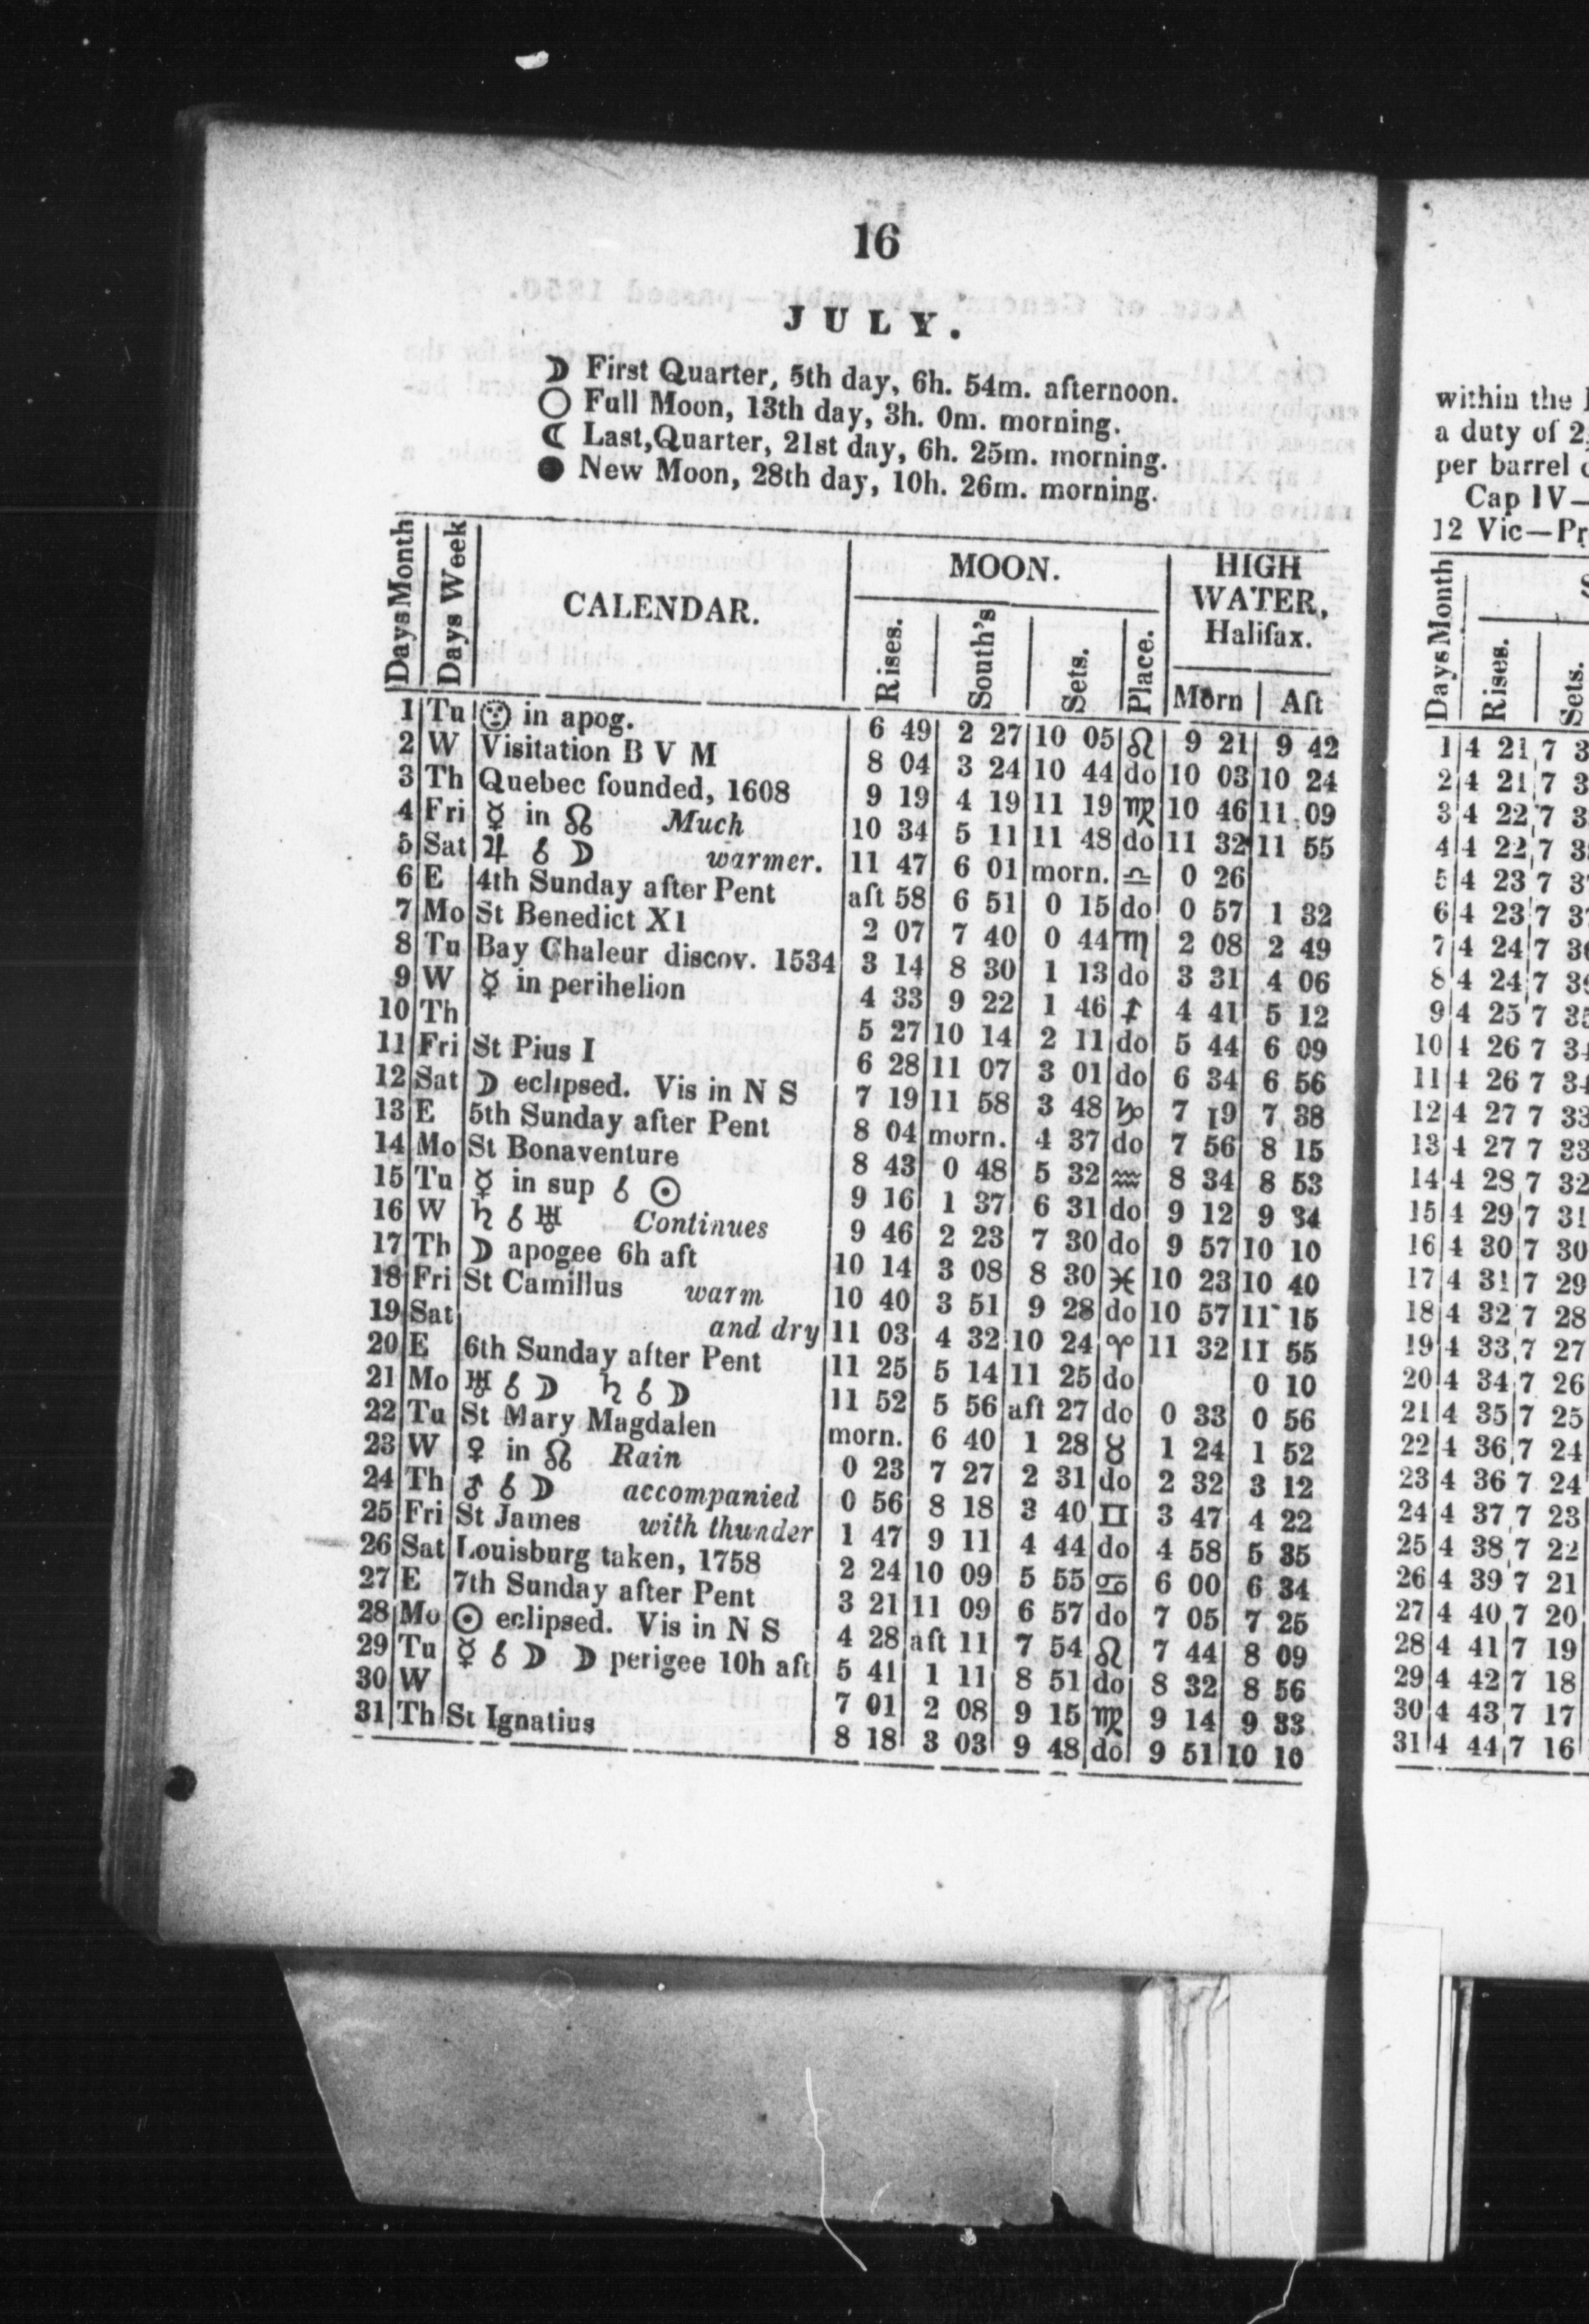 16
JULY.
☽ First Quarter, 5th day, 6h. 54m. afternoon.
○ Full Moon, 13th day, 3h. 0m. morning.
☾ Last,Quarter, 21st day, 6h. 25m. morning.
● New Moon, 28th day, 10h. 26m. morning.
Days Month | Days Week | CALENDAR. | MOON. Rises. | South's | Sets. | Place. | HIGH WATER, Halifax. Morn | Aft
1 Tu ☉ in apog. 6 49 2 27 10 05 ♌ 9 21 9 42
2 W Visitation B V M 8 04 3 24 10 44 do 10 03 10 24
3 Th Quebec founded, 1608 9 19 4 19 11 19 ♍ 10 46 11 09
4 Fri ☿ in ☊ Much 10 34 5 11 11 48 do 11 32 11 55
5 Sat ♃ ☌ ☽ warmer. 11 47 6 01 morn. ♎ 0 26
6 E 4th Sunday after Pent aft 58 6 51 0 15 do 0 57 1 32
7 Mo St Benedict X1 2 07 7 40 0 44 ♏ 2 08 2 49
8 Tu Bay Chaleur discov. 1534 3 14 8 30 1 13 do 3 31 4 06
9 W ☿ in perihelion 4 33 9 22 1 46 ♐ 4 41 5 12
10 Th 5 27 10 14 2 11 do 5 44 6 09
11 Fri St Pius I 6 28 11 07 3 01 do 6 34 6 56
12 Sat ☽ eclipsed. Vis in N S 7 19 11 58 3 48 ♑ 7 19 7 38
13 E 5th Sunday after Pent 8 04 morn. 4 37 do 7 56 8 15
14 Mo St Bonaventure 8 43 0 48 5 32 ♒ 8 34 8 53
15 Tu ☿ in sup ☌ ☉ 9 16 1 37 6 31 do 9 12 9 34
16 W ♄ ☌ ♅ Continues 9 46 2 23 7 30 do 9 57 10 10
17 Th ☽ apogee 6h aft 10 14 3 08 8 30 ♓ 10 23 10 40
18 Fri St Camillus warm 10 40 3 51 9 28 do 10 57 11 15
19 Sat and dry 11 03 4 32 10 24 ♈ 11 32 11 55
20 E 6th Sunday after Pent 11 25 5 14 11 25 do 0 10
21 Mo ♅ ☌ ☽ ♄ ☌ ☽ 11 52 5 56 aft 27 do 0 33 0 56
22 Tu St Mary Magdalen morn. 6 40 1 28 ♉ 1 24 1 52
23 W ♀ in ☊ Rain 0 23 7 27 2 31 do 2 32 3 12
24 Th ♂ ☌ ☽ accompanied 0 56 8 18 3 40 ♊ 3 47 4 22
25 Fri St James with thunder 1 47 9 11 4 44 do 4 58 5 35
26 Sat Louisburg taken, 1758 2 24 10 09 5 55 ♋ 6 00 6 34
27 E 7th Sunday after Pent 3 21 11 09 6 57 do 7 05 7 25
28 Mo ☉ eclipsed. Vis in N S 4 28 aft 11 7 54 ♌ 7 44 8 09
29 Tu ☿ ☌ ☽ ☽ perigee 10h aft 5 41 1 11 8 51 do 8 32 8 56
30 W 7 01 2 08 9 15 ♍ 9 14 9 33
31 Th St Ignatius 8 18 3 03 9 48 do 9 51 10 10
within the
a duty of 2
per barrel
Cap IV—
12 Vic—Pr
Days Month | Rises. | Sets.
1 4 21 7
2 4 21 7
3 4 22 7
4 4 22 7
5 4 23 7
6 4 23 7
7 4 24 7
8 4 24 7
9 4 25 7 35
10 4 26 7 34
11 4 26 7 34
12 4 27 7 33
13 4 27 7 33
14 4 28 7 32
15 4 29 7 31
16 4 30 7 30
17 4 31 7 29
18 4 32 7 28
19 4 33 7 27
20 4 34 7 26
21 4 35 7 25
22 4 36 7 24
23 4 36 7 24
24 4 37 7 23
25 4 38 7 22
26 4 39 7 21
27 4 40 7 20
28 4 41 7 19
29 4 42 7 18
30 4 43 7 17
31 4 44 7 16